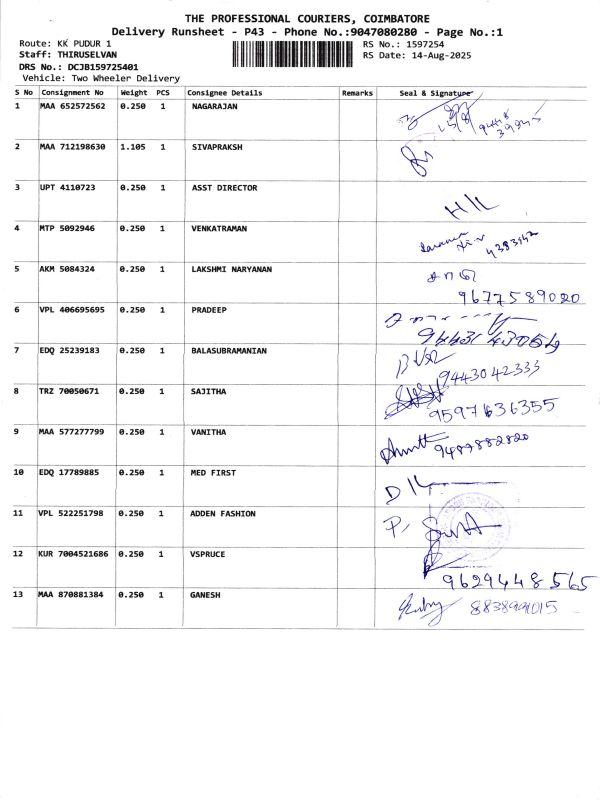 THE PROFESSIONAL COURIERS, COIMBATORE
Delivery Runsheet - P43 - Phone No.:9047080280 - Page No.:1
Route: KK PUDUR 1
RS No.: 1597254
Staff: THIRUSELVAN
RS Date: 14-Aug-2025
DRS No.: DCJB159725401
Vehicle: Two Wheeler Delivery
S No Consignment No Weight PCS Consignee Details Remarks Seal & Signature
1 MAA 652572562 0.250 1 NAGARAJAN
2 MAA 712198630 1.105 1 SIVAPRAKSH
3 UPT 4110723 0.250 1 ASST DIRECTOR
4 MTP 5092946 0.250 1 VENKATRAMAN
5 AKM 5084324 0.250 1 LAKSHMI NARYANAN
9677589020
6 VPL 406695695 0.250 1 PRADEEP
7 EDQ 25239183 0.250 1 BALASUBRAMANIAN
9443042333
8 TRZ 70050671 0.250 1 SAJITHA
9597636355
9 MAA 577277799 0.250 1 VANITHA
9487882820
10 EDQ 17789885 0.250 1 MED FIRST
11 VPL 522251798 0.250 1 ADDEN FASHION
12 KUR 7004521686 0.250 1 VSPRUCE
9629448565
13 MAA 870881384 0.250 1 GANESH